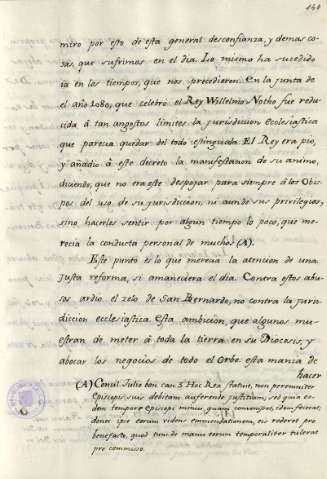 miro por esto de esta general desconfianza, y demas co-
sas, que sufrimos en el dia. Lo mismo ha sucedido
ia en los tiempos, que nos precedieron. En la junta de
el año 1080, que celebró el Rey Willelmo Notho fue redu-
cida á tan angostos límites la jurisdiccion Ecclesiastica
que parecia quedar del todo extinguida. El Rey era pio,
y añadio á este decreto la manifestacion de su animo,
diciendo, que no era este despojar para siempre á los Obis-
pos del uso de su jurisdiccion, ni aun de sus privilegios,
sino hacerles sentir por algun tiempo lo poco, que me-
recia la conducta personal de muchos (A).
Este punto es lo que merecia la atencion de una
Justa reforma, si amaneciera el dia. Contra estos abu-
sos ardio el zelo de San Bernardo, no contra la juris-
diccion ecclesiastica. Esta ambicion, que algunos mu-
estran de meter á toda la tierra en su Diocesis, y
abocar los negocios de todo el Orbe: esta mania de
hacer
(A) Concil. Julio bon. can. 5 Hoc Rex statuit, non perenniter
Episcopis suis debitam auferendo justitiam, sed quia eo-
dem tempore Episcopi minus quam convenisset, idem fecerant,
donec ipse eorum videns emmendationem, eis redderet pro
benefacto, quod tunc de manu eorum temporaliter tulerat
pro commisso.